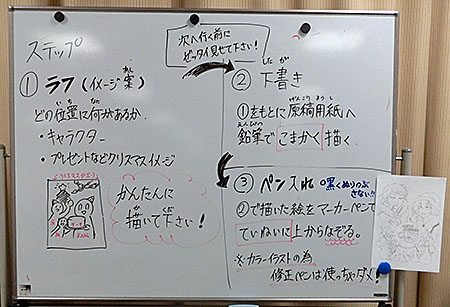 ステップ
次へ行く前に
ゼッタイ見せて下さい!
① ラフ(イメージ案)
どの位置に何があるか
・キャラクター
・プレゼントなどクリスマスイメージ
かんたんに
描いて下さい!
② 下書き
①をもとに原稿用紙へ
鉛筆でこまかく描く。
③ ペン入れ ○黒くぬりつぶ
さない!!
②で描いた絵をマーカーペンで
ていねいに上からなぞる。
※カラーイラストの為
修正ペンは使っちゃダメ!